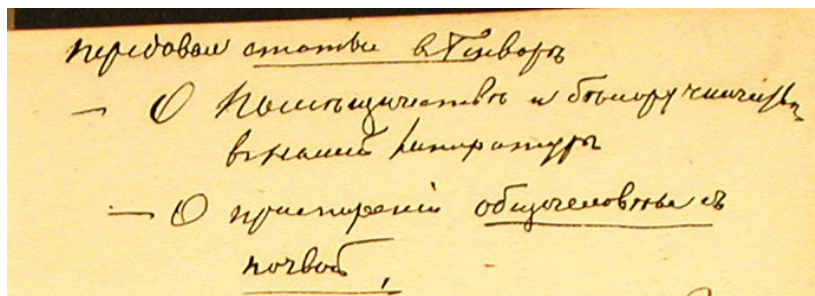 Передовая статья въ Генварѣ
— О Помѣщичествѣ и бѣлоручничествѣ
въ нашей литературѣ
— О примиреніи общечеловѣка съ
почвой,